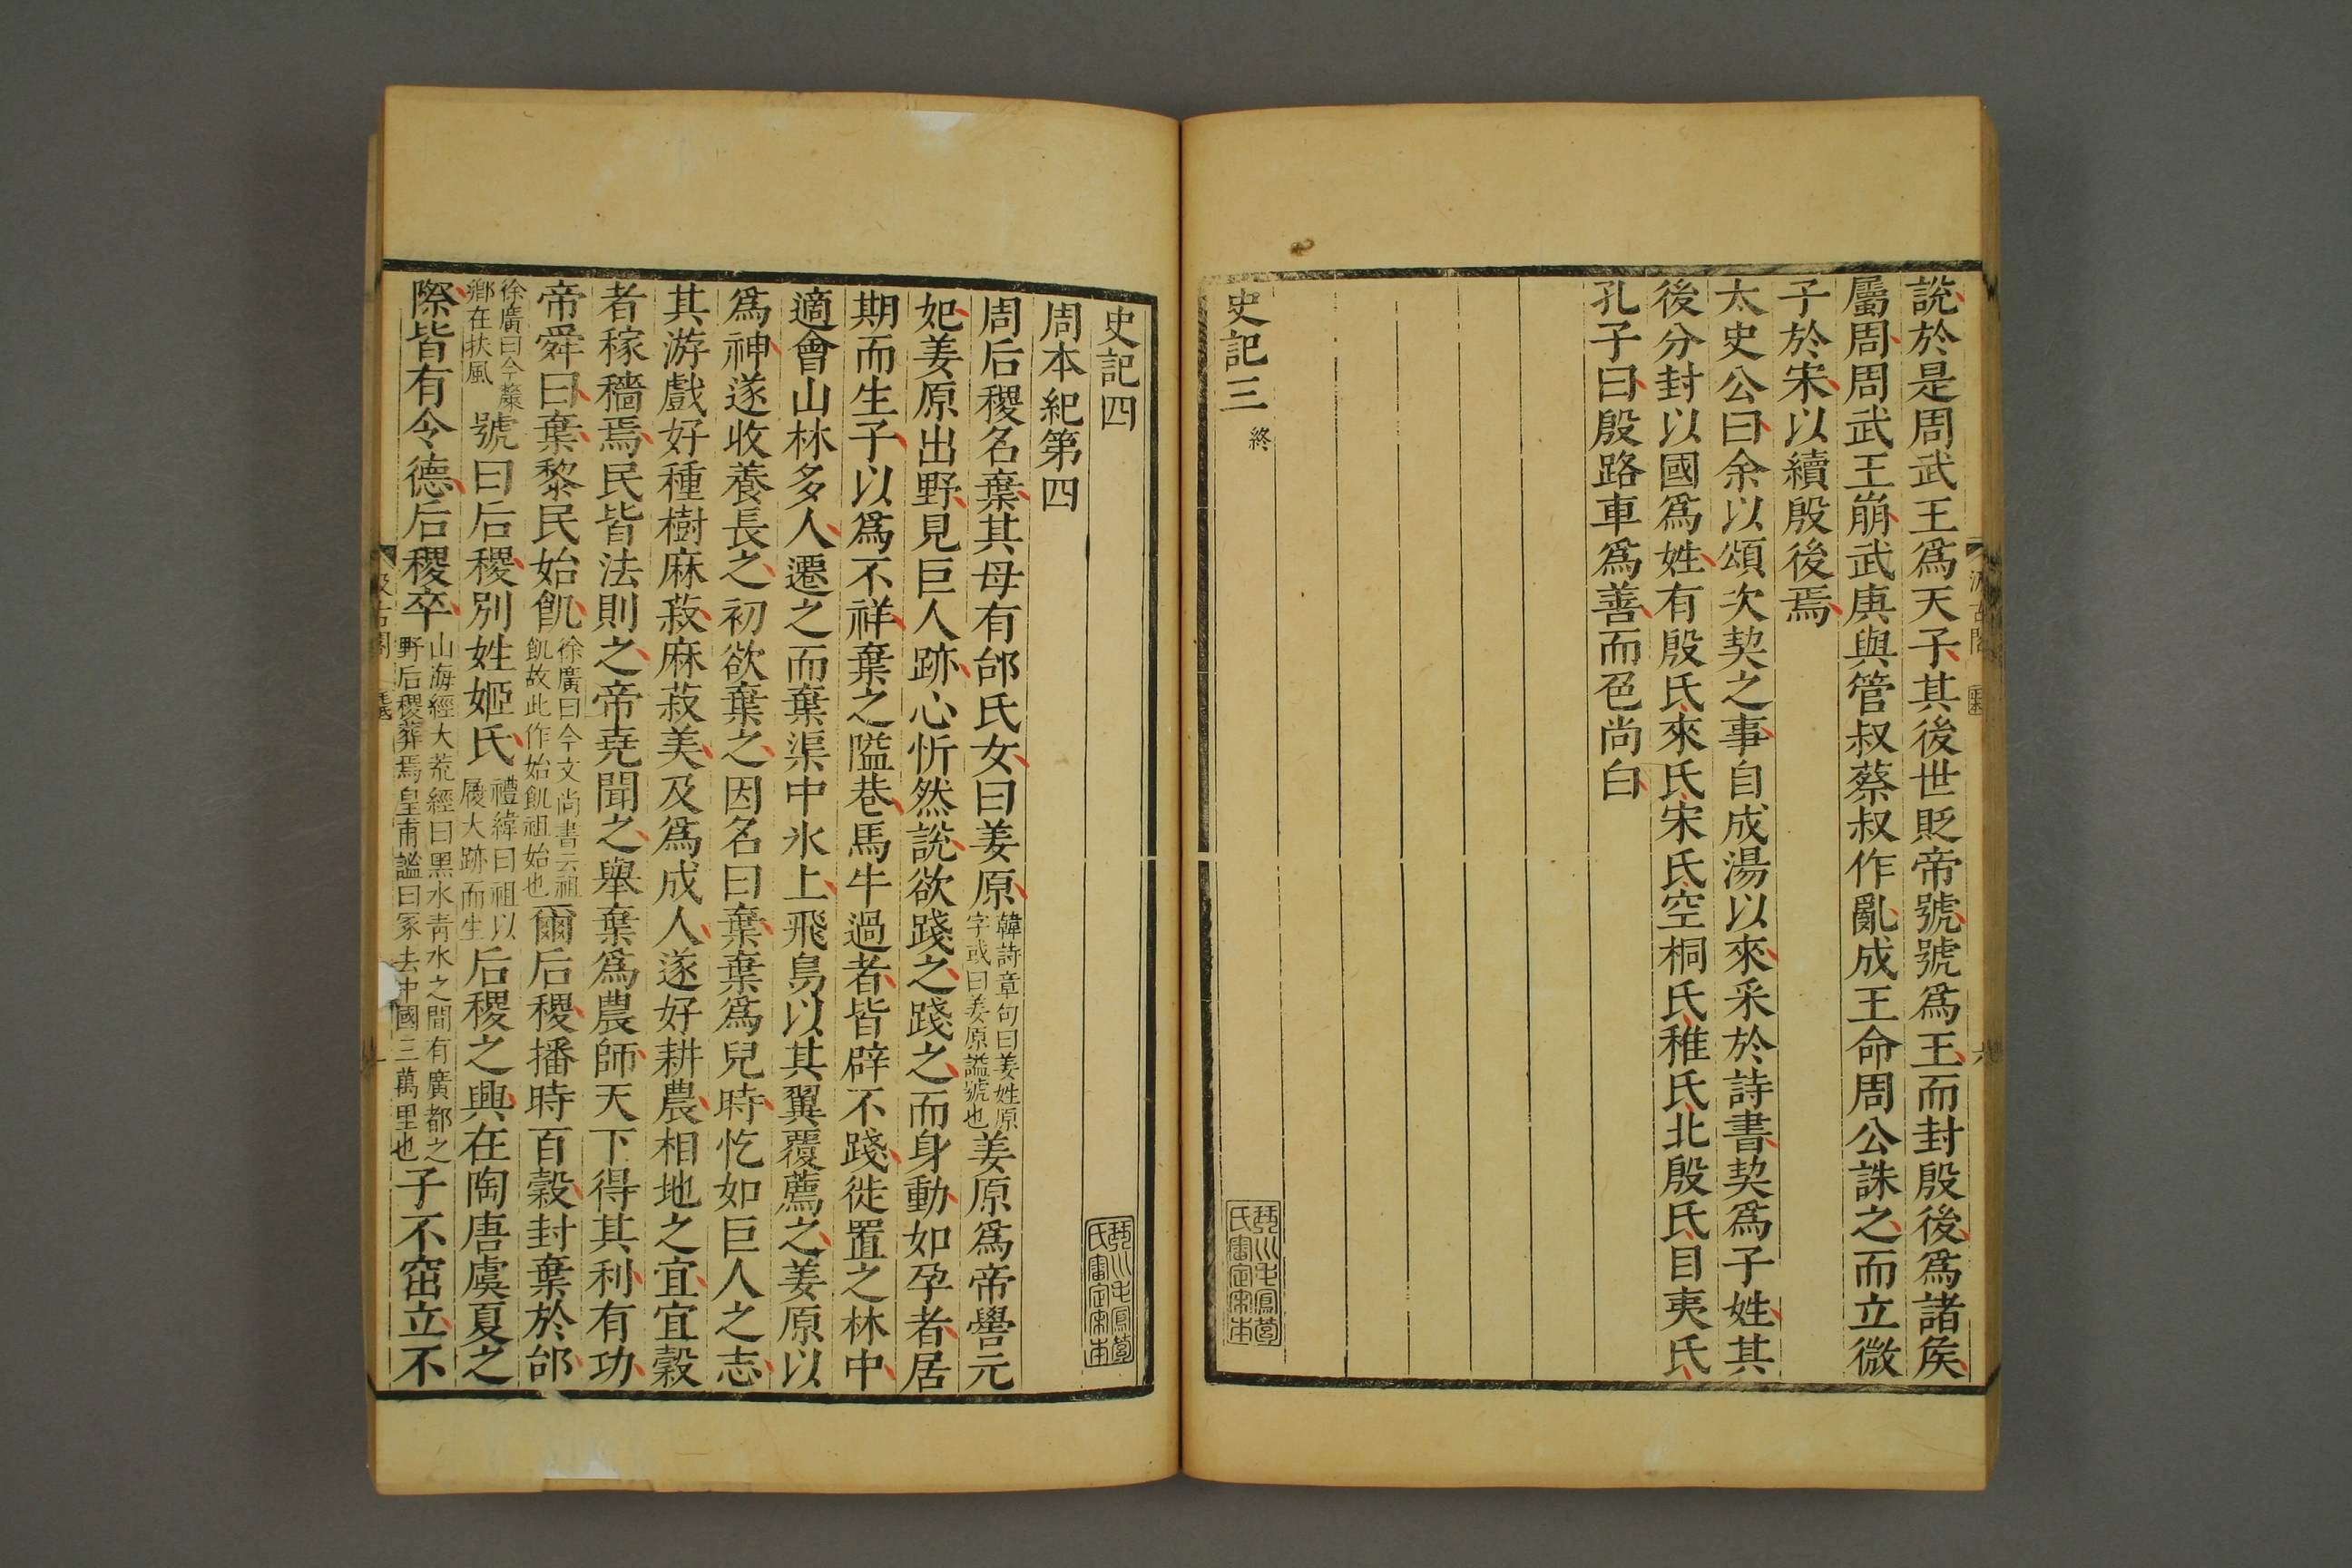 說於是周武王爲天子其後世貶帝號號爲王而封殷後爲諸侯
屬周周武王崩武庚與管叔蔡叔作亂成王命周公誅之而立微
子於宋以續殷後焉
太史公曰余以頌次契之事自成湯以來采於詩書契爲子姓其
後分封以國爲姓有殷氏來氏宋氏空桐氏稚氏北殷氏目夷氏
孔子曰殷路車爲善而色尚白
史記三 終
琴川毛鳳苞
氏審定宋本
史記四
琴川毛鳳苞
氏審定宋本
周本紀第四
周后稷名棄其母有邰氏女曰姜原韓詩章句曰姜姓原字或曰姜原謚號也姜原爲帝嚳元
妃姜原出野見巨人跡心忻然說欲踐之踐之而身動如孕者居
期而生子以爲不祥棄之隘巷馬牛過者皆辟不踐徙置之林中
適會山林多人遷之而棄渠中氷上飛鳥以其翼覆薦之姜原以
爲神遂收養長之初欲棄之因名曰棄棄爲兒時忔如巨人之志
其游戲好種樹麻菽麻菽美及爲成人遂好耕農相地之宜宜穀
者稼穡焉民皆法則之帝堯聞之舉棄爲農師天下得其利有功
帝舜曰棄黎民始飢徐廣曰今文尚書云祖飢故此作始飢祖始也爾后稷播時百穀封棄於邰
徐廣曰今斄鄉在扶風號曰后稷別姓姬氏禮緯曰祖以履大跡而生后稷之興在陶唐虞夏之
際皆有令德后稷卒山海經大荒經曰黑水青水之間有廣都之野后稷葬焉皇甫謐曰冢去中國三萬里也子不窋立不